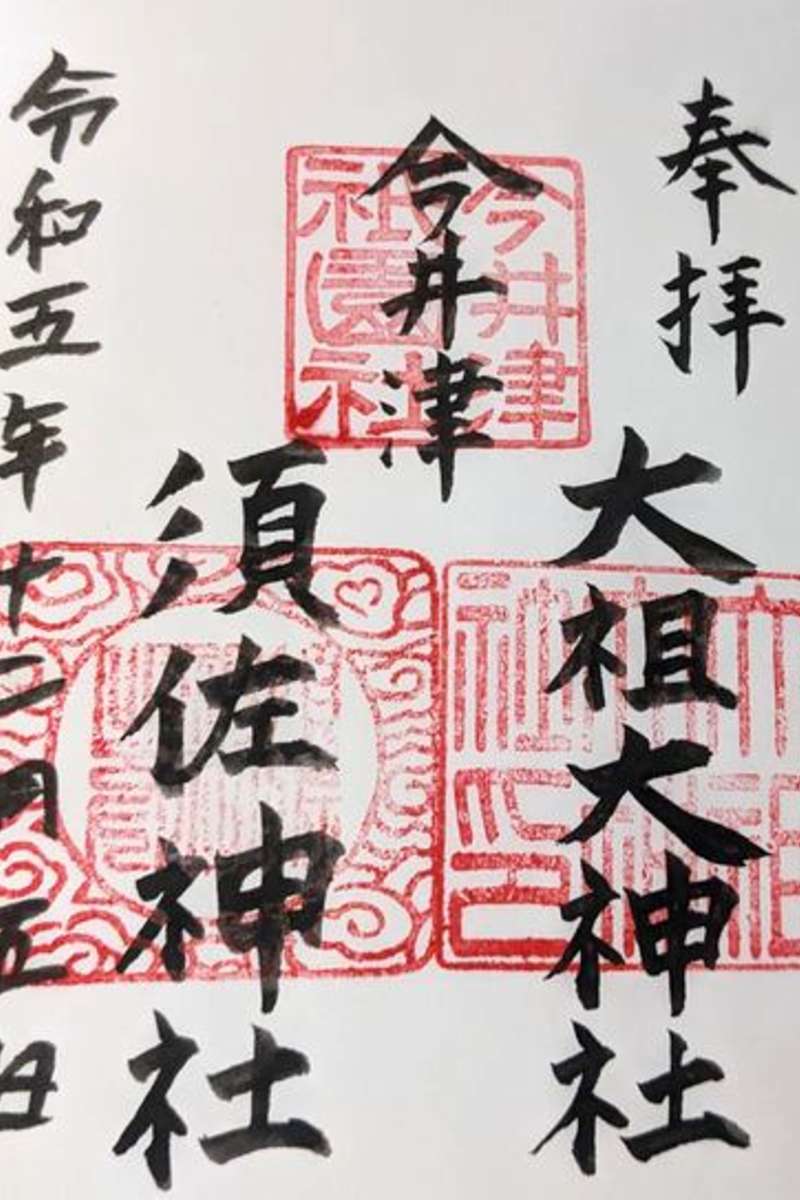 奉拝
大祖大神社
今井津
須佐神社
令和五年十二月五日
今井津
祇園社